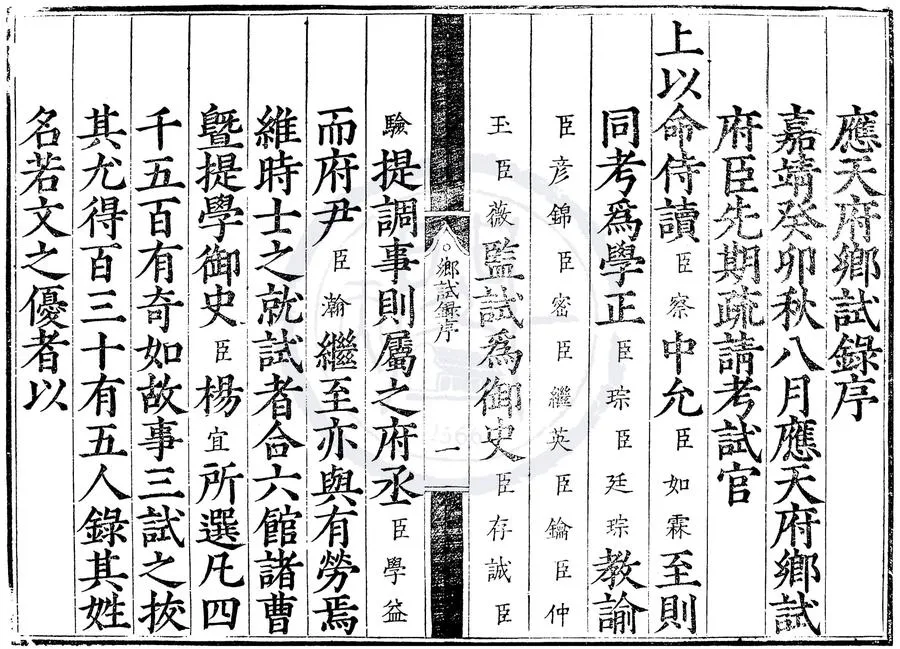 應天府鄉試錄序
嘉靖癸卯秋八月應天府鄉試
府臣先期疏請考試官
上以命侍讀臣察中允臣如霖至則
同考爲學正臣琮臣廷琮教諭
臣彥錦臣密臣繼英臣鑰臣仲
玉臣薇監試爲御史臣存誠臣
鄉試錄序
一
驗提調事則屬之府丞臣學益
而府尹臣瀚繼至亦與有勞焉
維時士之就試者合六館諸曹
暨提學御史臣楊宜所選凡四
千五百有奇如故事三試之拔
其尤得百三十有五人錄其姓
名若文之優者以